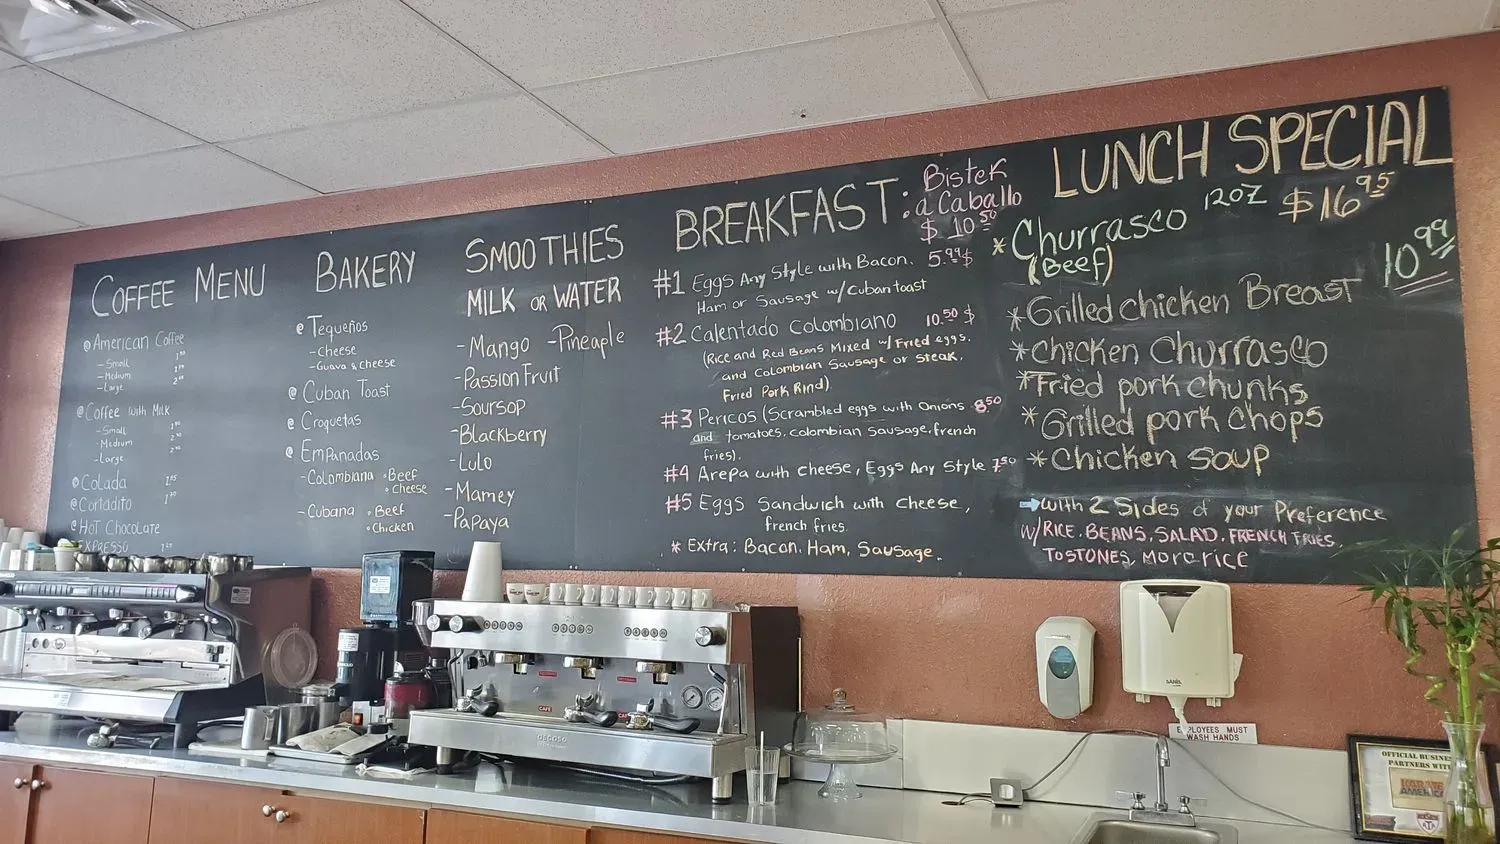 COFFEE MENU
@ American Coffee
- Small
- Medium
- Large
@ Coffee with Milk
- Small
- Medium
- Large
@ Colada
@ Cortadito
@ Hot Chocolate
BAKERY
@ Tequeños
- Cheese
- Guava & Cheese
@ Cuban Toast
@ Croquetas
@ Empanadas
- Colombiana • Beef
• Cheese
- Cubana • Beef
• Chicken
SMOOTHIES
MILK OR WATER
- Mango - Pineaple
- Passion Fruit
- Soursop
- Blackberry
- Lulo
- Mamey
- Papaya
BREAKFAST: Bistek
a Caballo
$ 10.50
#1 Eggs Any Style with Bacon. 5.99$
Ham or Sausage w/ Cuban toast
#2 Calentado Colombiano 10.50 $
(Rice and Red Beans Mixed w/ Fried eggs.
and Colombian Sausage or Steak.
Fried Pork Rind)
#3 Pericos (Scrambled eggs with Onions 8.50
and tomatoes, colombian sausage, french
fries).
#4 Arepa with cheese, Eggs Any Style 7.50
#5 Eggs Sandwich with cheese,
french fries.
* Extra: Bacon, Ham, Sausage.
LUNCH SPECIAL
* Churrasco 12OZ $16.95
(Beef)
10.99
* Grilled chicken Breast
* Chicken Churrasco
* Fried pork chunks
* Grilled pork chops
* Chicken soup
with 2 Sides of your Preference
w/ RICE, BEANS, SALAD, FRENCH FRIES,
TOSTONES, More rice
SANIS
EMPLOYEES MUST
WASH HANDS
OFFICIAL BUSINESS
PARTNERS WITH
KARATE
AMERICA